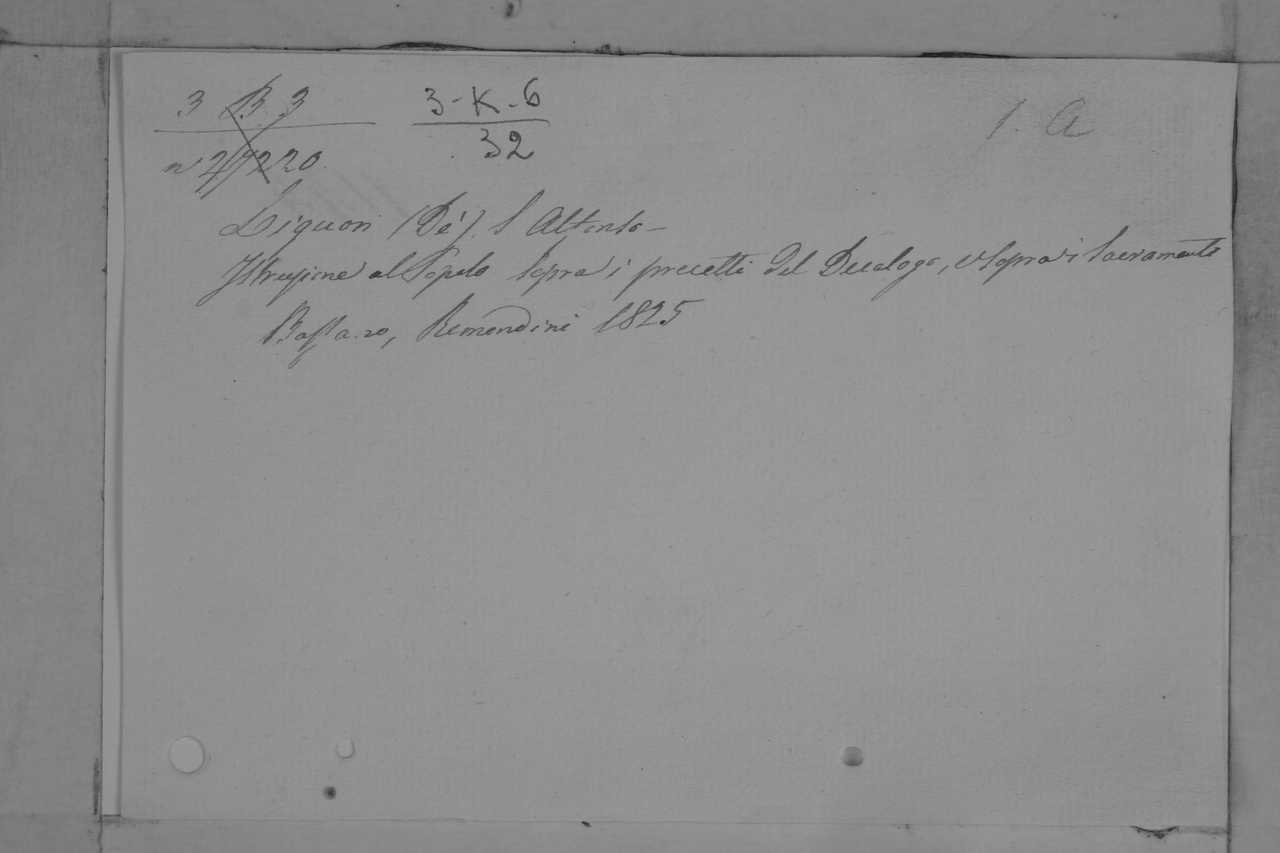 3 B. 3
3-K-6
1. A
32
Liguori (De'). S. Alfonso-
Istruzione al Popolo sopra i precetti del Decalogo, e sopra i Sacramenti
Bassano, Remondini 1825